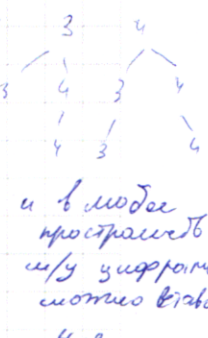 3 4
3 4 3 4
4 3 4
и в любое
пространств
м/у цифрами
можно встав